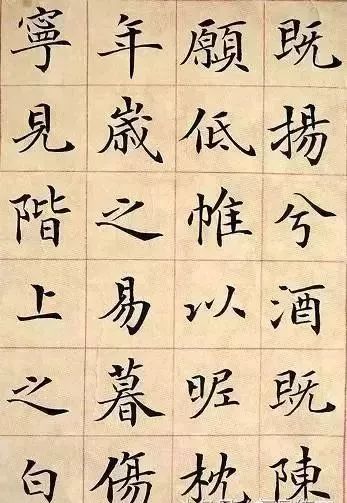 既揚兮酒既陳
願低帷以昵枕
年歲之易暮傷
寧見階上之白